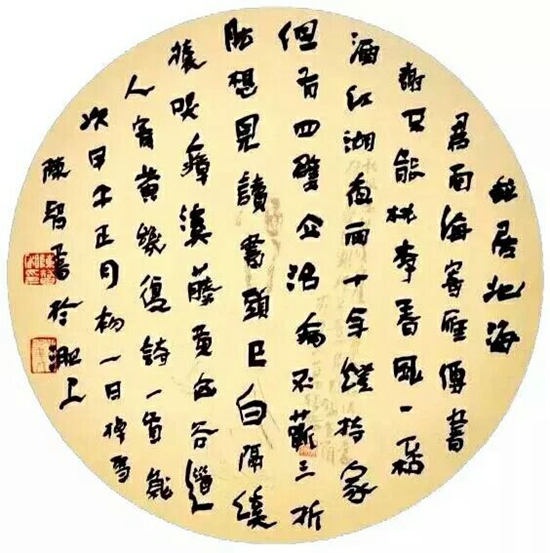 我居北海
君南海寄雁傳書
謝不能桃李春風一杯
酒江湖夜雨十年燈持家
但有四壁立治病不蘄三折
肱想見讀書頭已白隔溪
猿哭瘴溪藤黄山谷道
人寄黄幾復詩一首歲
次甲午正月初一日雪
陳智書於淝上